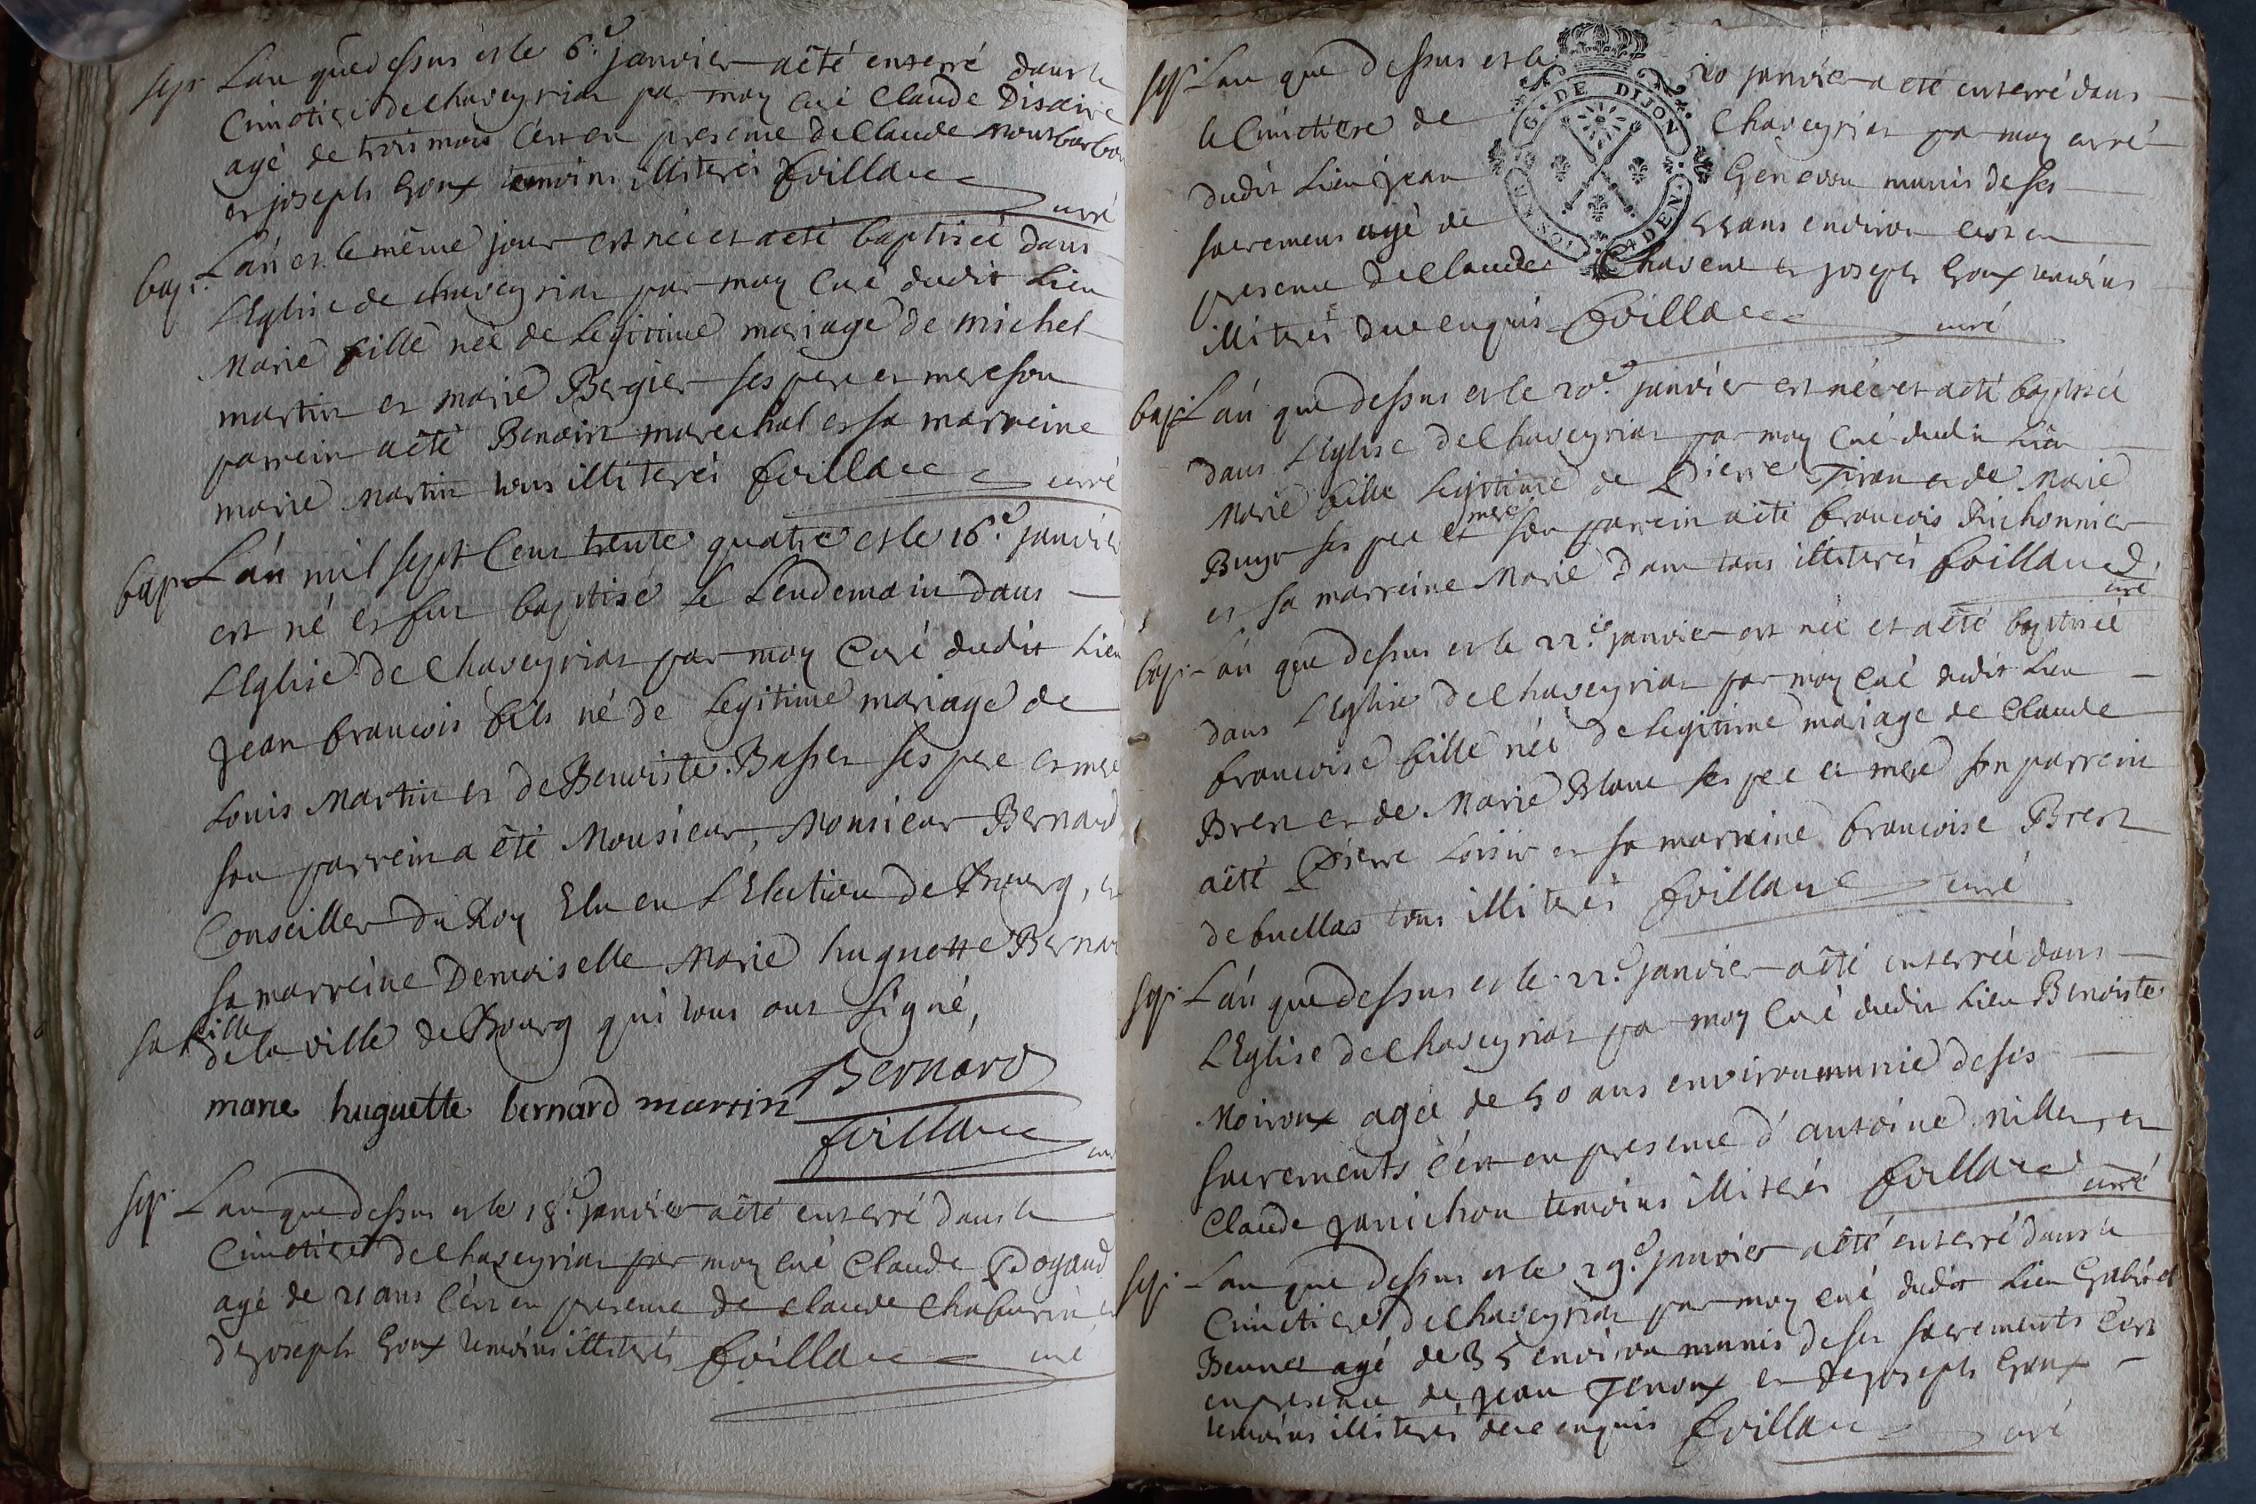 sep. L'an que dessus et le 6.e janvier a êté enterré dans le
Cimetiere de Chaveyriat par moy curé Claude Disdire
agé de trois mois c'est en presence de Claude Montbarbon
et joseph Goux temoins illiterés foillace curé
bap. L'an et le même jour est née et a eté baptiseé dans
L'Eglise de Chaveyriat par moy curé dudit Lieu
Marie fille née de Legitime mariage de michel
martin et marie Bergier ses pere et mere son
parrein a êté Benoist marechal et sa marreine
marie martin tous illiterés foillace curé
bap. L'an mil sept Cens trente quatre et le 16.e janvier
est né et fut baptise Le Lendemain dans
L'Eglise de Chaveyriat par moy Curé dudit Lieu
Jean francois fils né de Legitime mariage de
Louis Martin et de Benoiste Basset ses pere et mere
son parrein a êté Monsieur, Monsieur Bernard
Conseiller du Roy Elu en L'Election de Bourg, et
sa marreine Demoiselle Marie huguette Bernard
sa fille
de la ville de Bourg qui tous ont signé,
Bernard
marie huguette bernard martin
foillace curé
sep. L'an que dessus et le 18.e janvier a êté enterré dans le
Cimetiere de Chaveyriat par moy curé Claude Pogaud
agé de 21 ans c'est en presence de Claude Chaburin et
de joseph Goux temoins illiterés foillace curé
sep. L'an que dessus et le 20 janvier a eté enterré dans
le Cimetiere de Chaveyriat par moy curé
G. DE DIJON
dudit Lieu Jean Genevou munis de ses
sacremens agé de 55 ans environ c'est en
presence de Claude Chavent et joseph Goux temoins
illiterés de ce enquis foillace curé
bap. L'an que dessus et le 20.e janvier est neé et a eté baptiseé
dans L'Eglise de Chaveyriat par moy Curé dudit Lieu
Marie fille Legitime de Pierre Tiran et de Marie
mere
Buyr ses pere et son parrein a eté francois Richonnier
et sa marreine Marie Dam tous illiterés foillace
curé
bap. L'an que dessus et le 22.e janvier est née et a êté baptiseé
dans L'Eglise de Chaveyriat par moy Curé dudit Lieu
francoise fille née de Legitime mariage de Claude
Bret et de Marie Blanc ses pere et mere son parrein
a êté Pierre Loisir et sa marreine francoise Bret
de buellas tous illiterés foillace curé
sep. L'an que dessus et le 22.e janvier a êté enterrée dans
L'Eglise de Chaveyriat par moy Curé dudit Lieu Benoiste
Moiroux agée de 50 ans environ munie de ses
sacrements c'est en presence d'antoine nillet, et
Claude Janichon temoins illiterés foillace curé
sep. L'an que dessus et le 29.e janvier a êté enterré dans le
Cimetiere de Chaveyriat par moy curé dudit Lieu Gabriel
Beunet agé de 35 environ munis de ses sacrements c'est
en presence de Jean Tenoux et de joseph Goux
temoins illiterés de ce enquis foillace curé